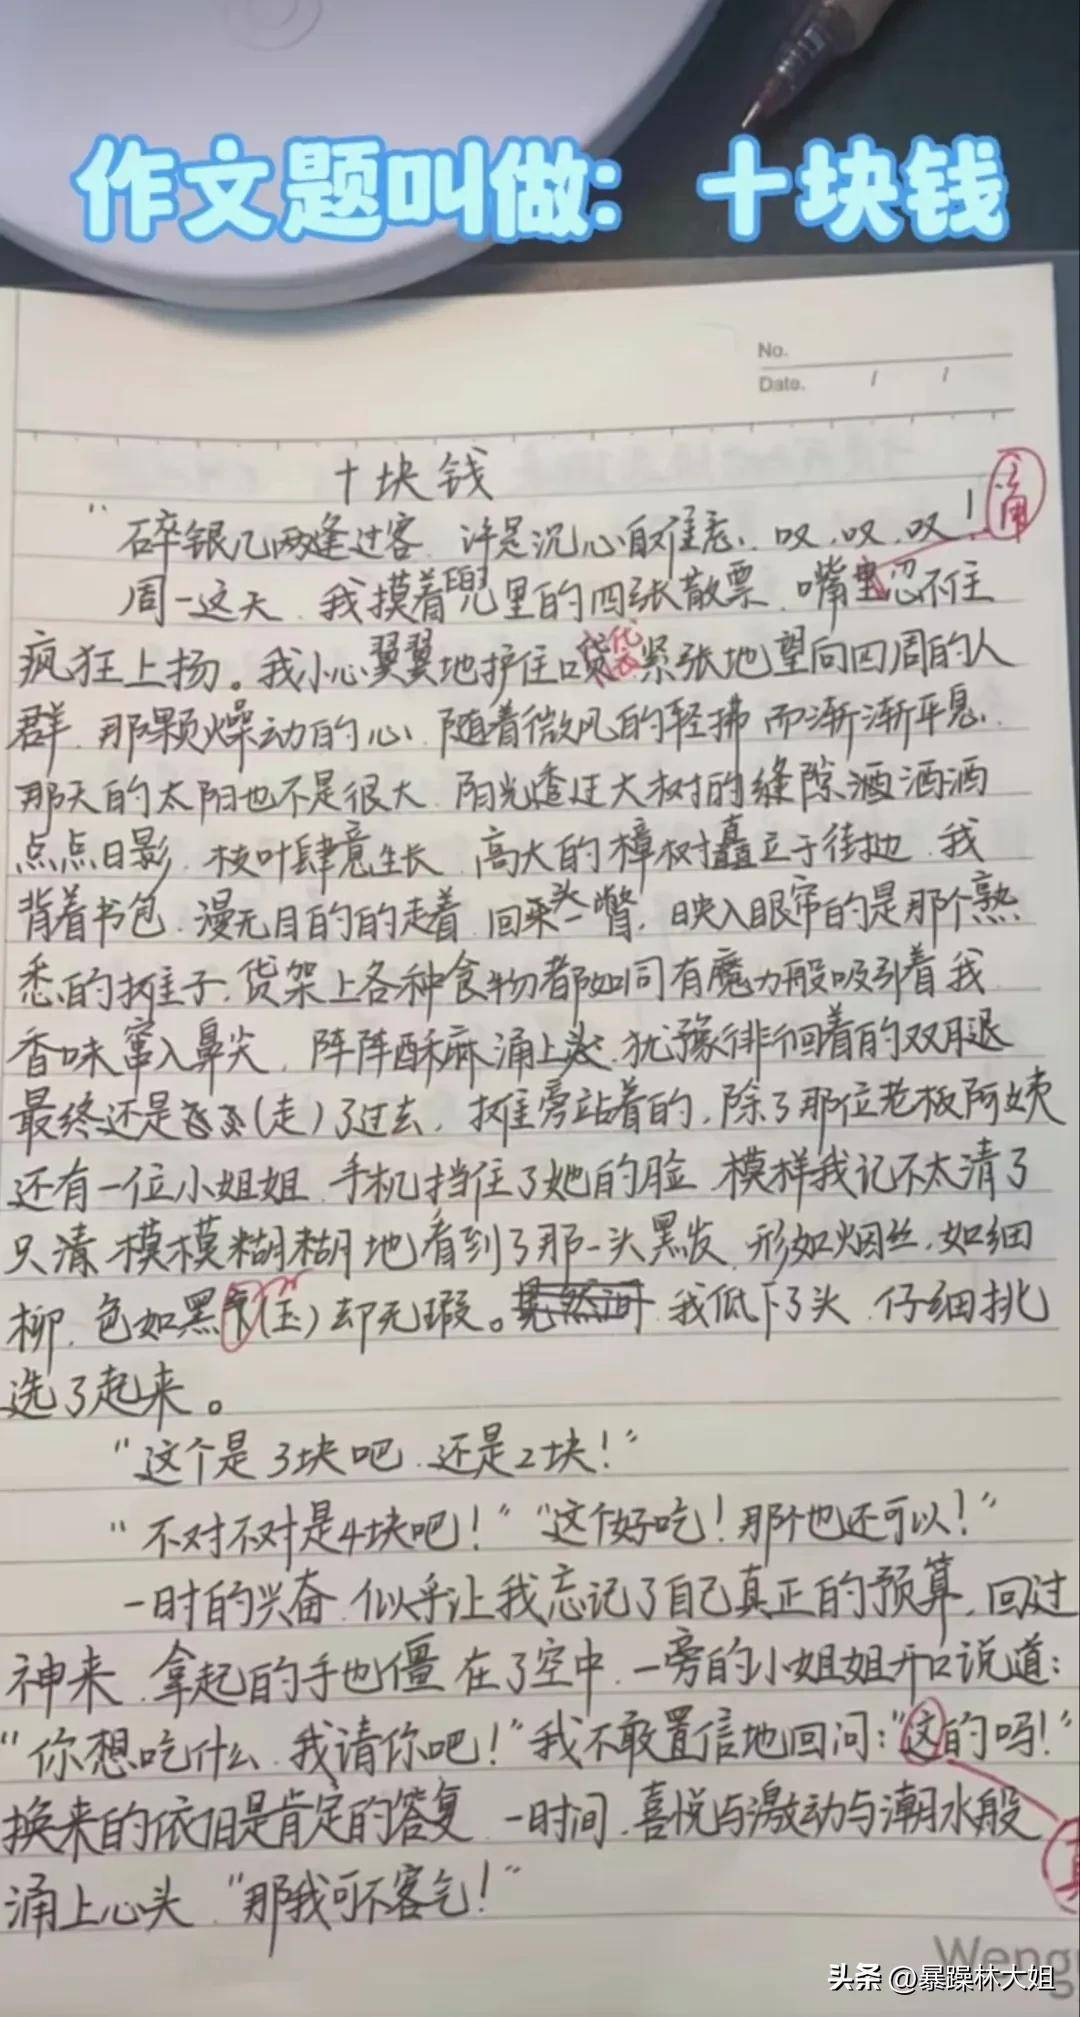 作文题叫做：十块钱
No.
Date. / /
十块钱
“碎银几两逢过客，许是沉心自难忘，叹，叹，叹！
周一这天，我摸着兜里的四张散票，嘴里忍不住
角
疯狂上扬。我小心翼翼地护住口袋紧张地望向四周的人
群，那颗燥动的心，随着微风的轻拂而渐渐平息，
那天的太阳也不是很大，阳光透过大树的缝隙洒洒
点点日影，枝叶肆意生长，高大的樟树矗立于街边，我
背着书包，漫无目的的走着，回头一瞥，映入眼帘的是那个熟
悉的摊子，货架上各种食物都如同有魔力般吸引着我
香味窜入鼻尖，阵阵酥麻涌上头，犹豫徘徊着的双腿
最终还是(走)了过去，摊旁站着的，除了那位老板阿姨
还有一位小姐姐，手机挡住了她的脸，模样我记不太清了
只清模模糊糊地看到了那一头黑发，形如烟丝，如细
柳，色如黑(玉)却无瑕。我低下了头，仔细挑
选了起来。
“这个是3块吧，还是2块！”
“不对不对是4块吧！”“这个好吃！那个也还可以！”
一时的兴奋，似乎让我忘记了自己真正的预算，回过
神来，拿起的手也僵在了空中，一旁的小姐姐开口说道：
“你想吃什么，我请你吧！”我不敢置信地回问：“这的吗！”
换来的依旧是肯定的答复，一时间，喜悦与激动与潮水般
真
涌上心头，“那我可不客气！”
Weng
头条 @暴躁林大姐